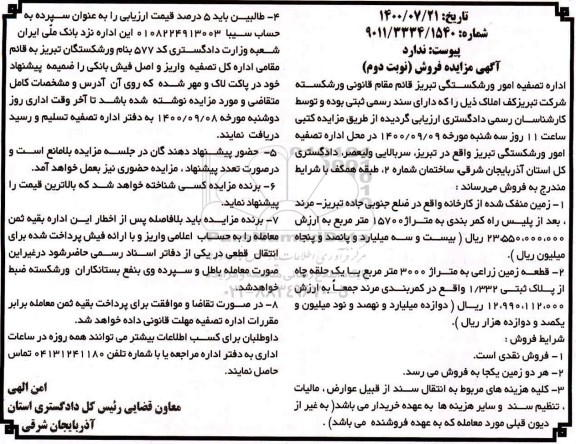 تاریخ: ۱۴۰۰/۰۷/۲۱
شماره: ۹۰۱۱/۳۳۳۴/۱۵۴۰
پیوست: ندارد
آگهی مزایده فروش (نوبت دوم)
اداره تصفیه امور ورشکستگی تبریز قائم مقام قانونی ورشکسته
شرکت تبریزکف املاک ذیل را که دارای سند رسمی ثبتی بوده و توسط
کارشناسان رسمی دادگستری ارزیابی گردیده از طریق مزایده کتبی
ساعت ۱۱ روز سه شنبه مورخه ۱۴۰۰/۰۹/۰۹ در محل اداره تصفیه
امور ورشکستگی تبریز واقع در تبریز، سربالایی ولیعصر، دادگستری
کل استان آذربایجان شرقی، ساختمان شماره ۲، طبقه همکف با شرایط
مندرج به فروش می‌رساند :
۱- زمین منفک شده از کارخانه واقع در ضلع جنوبی جاده تبریز- مرند
، بعد از پلیس راه کمر بندی به متراژ ۱۵۷۰۰ متر مربع به ارزش
۲۳،۵۵۰،۰۰۰،۰۰۰ ریال ( بیست و سه میلیارد و پانصد و پنجاه
میلیون ریال ).
۲- قطعه زمین زراعی به متراژ ۳۰۰۰ متر مربع با یک حلقه چاه
از پلاک ثبتی ۱/۳۳۲ واقع در کمربندی مرند جمعاً به ارزش
۱۲،۹۹۰،۱۱۲،۰۰۰ ریال ( دوازده میلیارد و نهصد و نود میلیون و
یکصد و دوازده هزار ریال ).
شرایط فروش :
۱- فروش نقدی است.
۲- هر دو زمین یکجا به فروش می رسد.
۳- کلیه هزینه های مربوط به انتقال سند از قبیل عوارض ، مالیات
، تنظیم سند و سایر هزینه ها به عهده خریدار می باشد( به غیر از
دیون قبلی مورد معامله که به عهده فروشنده می باشد) .
۴- طالبین باید ۵ درصد قیمت ارزیابی را به عنوان سپرده به
حساب سیبا ۰۱۰۸۲۲۴۹۱۳۰۰۳ این اداره نزد بانک ملّی ایران
شعبه وزارت دادگستری کد ۵۷۷ بنام ورشکستگان تبریز به قائم
مقامی اداره کل تصفیه واریز و اصل فیش بانکی را ضمیمه پیشنهاد
خود در پاکت لاک و مهر شده که روی آن آدرس و مشخصات کامل
متقاضی و مورد مزایده نوشته شده باشد تا آخر وقت اداری روز
دوشنبه مورخه ۱۴۰۰/۰۹/۰۸ به دفتر اداره تصفیه تسلیم و رسید
دریافت نمایند.
۵- حضور پیشنهاد دهنده گان در جلسه مزایده بلامانع است و
درصورت تعدد پیشنهاد ، مزایده حضوری نیز بعمل خواهد آمد.
۶- برنده مزایده کسی شناخته خواهد شد که بالاترین قیمت را
پیشنهاد نماید.
۷- برنده مزایده باید بلافاصله پس از اخطار این اداره بقیه ثمن
معامله را به حساب اعلامی واریز و با ارائه فیش پرداخت شده برای
انتقال قطعی در یکی از دفاتر اسناد رسمی حاضرشود درغیراین
صورت معامله باطل و سپرده وی بنفع بستانکاران ورشکسته ضبط
خواهدشد.
۸- در صورت تقاضا و موافقت برای پرداخت بقیه ثمن معامله برابر
مقررات اداره تصفیه مهلت قانونی داده خواهد شد.
داوطلبان برای کسب اطلاعات بیشتر می توانند همه روزه در ساعات
اداری به دفتر اداره مراجعه یا با شماره تلفن ۰۴۱۳۱۲۴۱۱۸۰ تماس
حاصل نمایند.
امن الهی
معاون قضایی رئیس کل دادگستری استان
آذربایجان شرقی